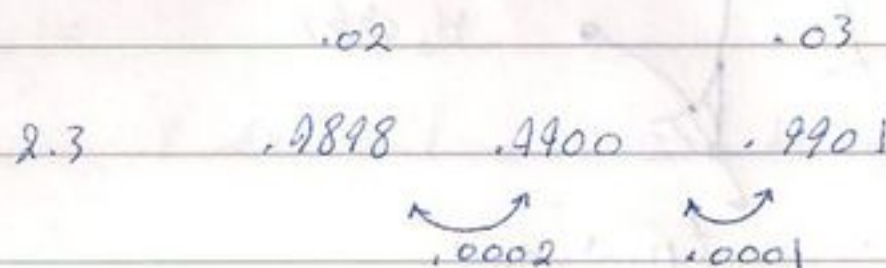 .02 .03
2.3 .9898 .9900 .9901
.0002 .0001